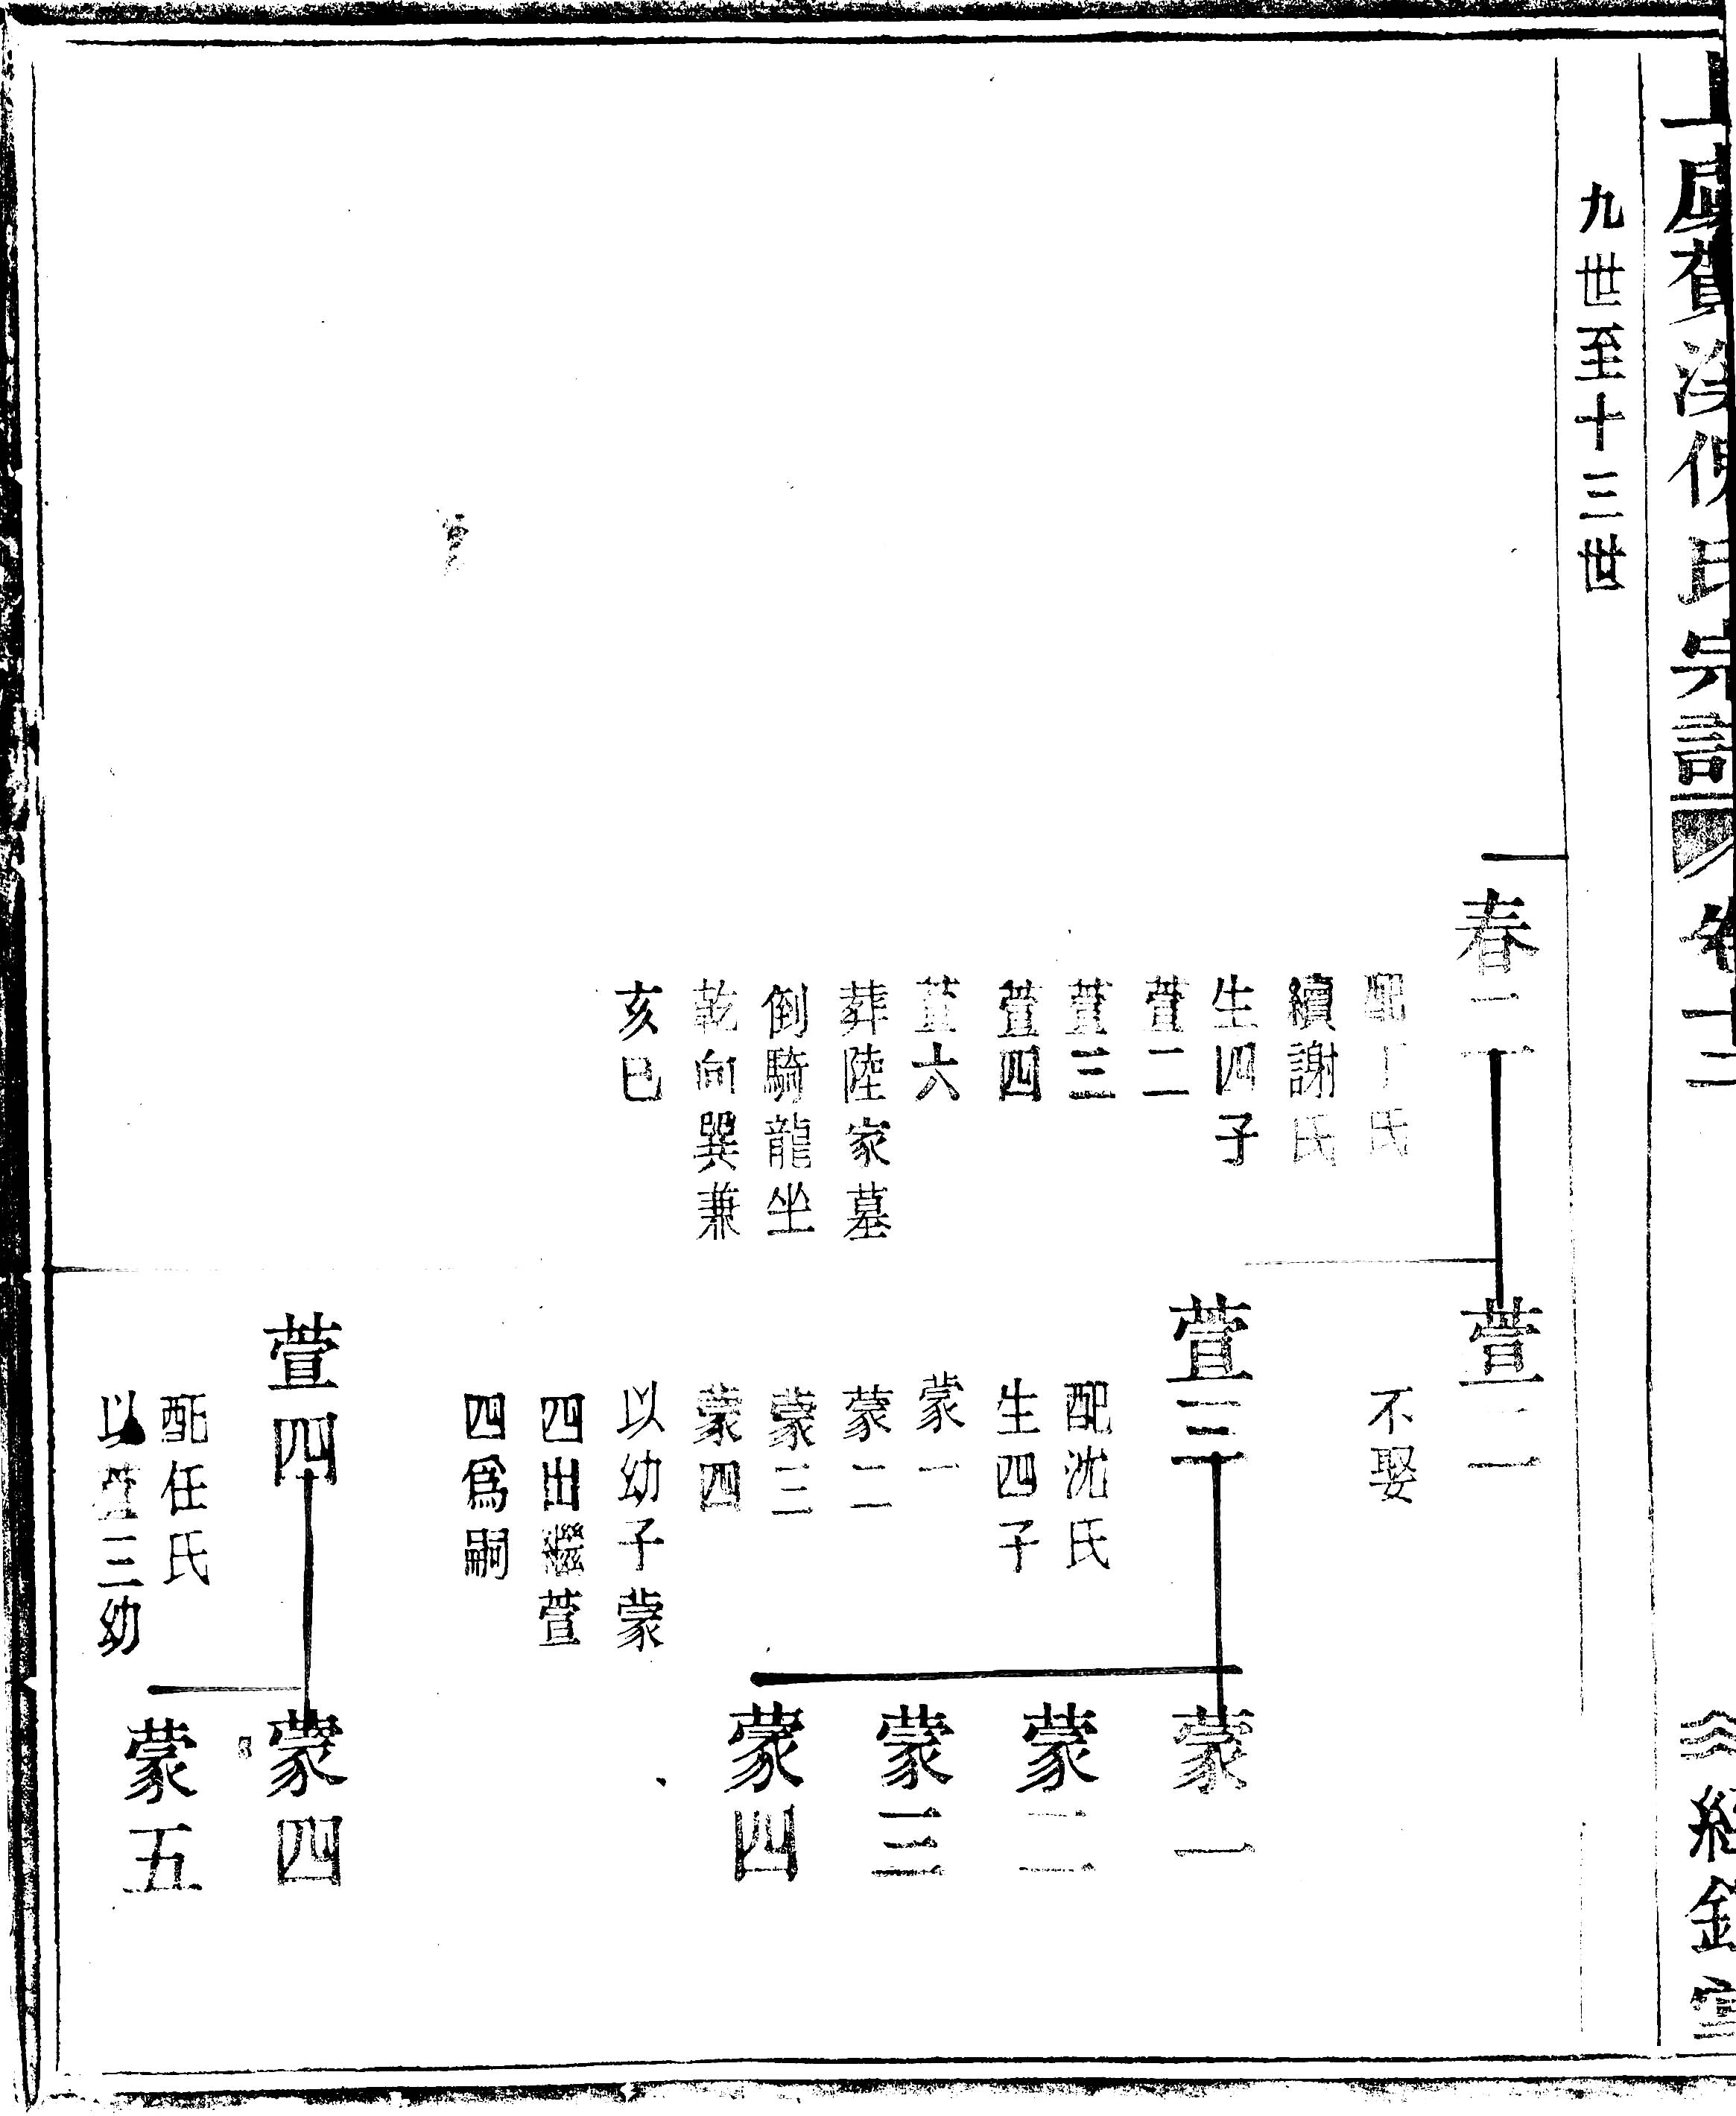 上虞賀溪倪氏宗譜 卷十二 經鋤堂
九世至十三世
春二
配丁氏
續謝氏
生四子
萱二
萱三
萱四
萱六
葬陸家墓
倒騎龍坐
乾向巽兼
亥巳
萱二
不娶
萱三
配沈氏
生四子
蒙一
蒙二
蒙三
蒙四
以幼子蒙
四出繼萱
四爲嗣
萱四
配任氏
以萱三幼
蒙一
蒙二
蒙三
蒙四
蒙四
蒙五